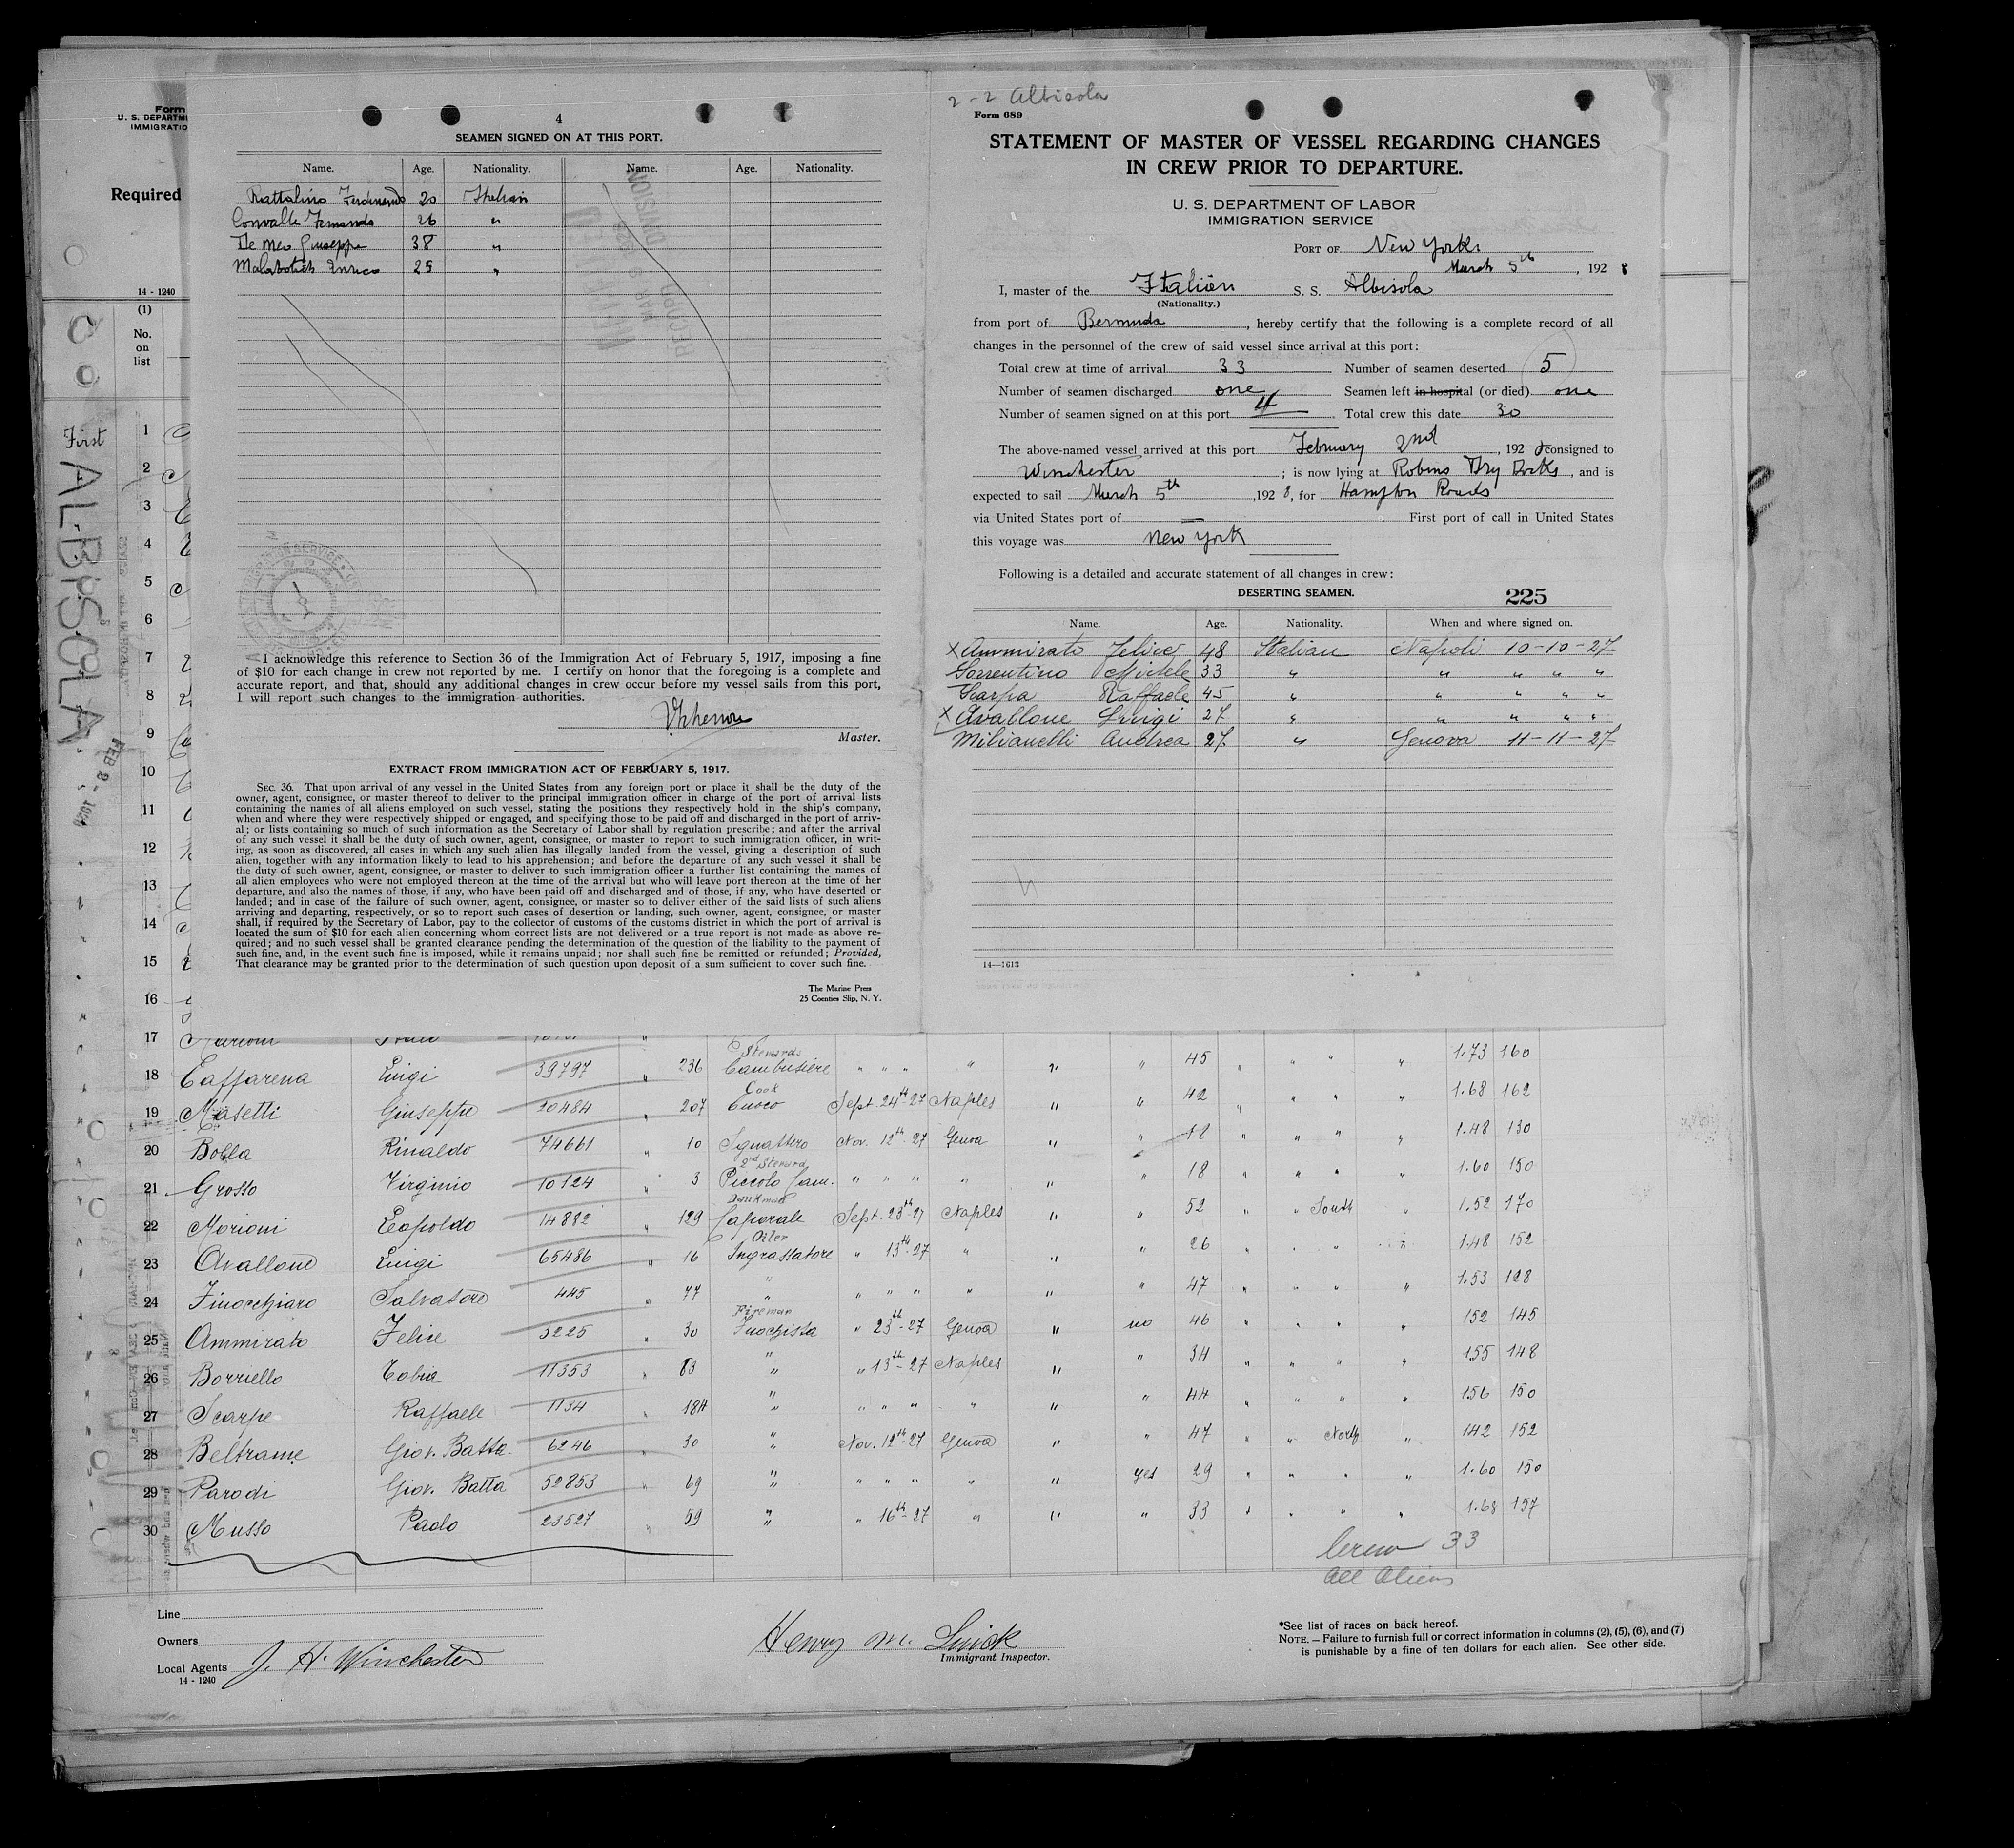 Form
U. S. DEPARTME
IMMIGRATIO
Required
14 - 1240
(1)
No.
on
list
First
ALBISOLA
FEB 2 - 1928
4
SEAMEN SIGNED ON AT THIS PORT.
Name. Age. Nationality. Name. Age. Nationality.
Rattalino Ferdinando 20 Italian
Convalle Fernando 26 "
De Meo Giuseppe 38 "
Malabotich Enrico 25 "
I acknowledge this reference to Section 36 of the Immigration Act of February 5, 1917, imposing a fine
of $10 for each change in crew not reported by me. I certify on honor that the foregoing is a complete and
accurate report, and that, should any additional changes in crew occur before my vessel sails from this port,
I will report such changes to the immigration authorities.
Master.
EXTRACT FROM IMMIGRATION ACT OF FEBRUARY 5, 1917.
SEC. 36. That upon arrival of any vessel in the United States from any foreign port or place it shall be the duty of the
owner, agent, consignee, or master thereof to deliver to the principal immigration officer in charge of the port of arrival lists
containing the names of all aliens employed on such vessel, stating the positions they respectively hold in the ship's company,
when and where they were respectively shipped or engaged, and specifying those to be paid off and discharged in the port of arriv-
al; or lists containing so much of such information as the Secretary of Labor shall by regulation prescribe; and after the arrival
of any such vessel it shall be the duty of such owner, agent, consignee, or master to report to such immigration officer, in writ-
ing, as soon as discovered, all cases in which any such alien has illegally landed from the vessel, giving a description of such
alien, together with any information likely to lead to his apprehension; and before the departure of any such vessel it shall be
the duty of such owner, agent, consignee, or master to deliver to such immigration officer a further list containing the names of
all alien employees who were not employed thereon at the time of the arrival but who will leave port thereon at the time of her
departure, and also the names of those, if any, who have been paid off and discharged and of those, if any, who have deserted or
landed; and in case of the failure of such owner, agent, consignee, or master so to deliver either of the said lists of such aliens
arriving and departing, respectively, or so to report such cases of desertion or landing, such owner, agent, consignee, or master
shall, if required by the Secretary of Labor, pay to the collector of customs of the customs district in which the port of arrival is
located the sum of $10 for each alien concerning whom correct lists are not delivered or a true report is not made as above re-
quired; and no such vessel shall be granted clearance pending the determination of the question of the liability to the payment of
such fine, and, in the event such fine is imposed, while it remains unpaid; nor shall such fine be remitted or refunded; Provided,
That clearance may be granted prior to the determination of such question upon deposit of a sum sufficient to cover such fine.
The Marine Press
25 Coenties Slip, N. Y.
2-2 Albisola
Form 689
STATEMENT OF MASTER OF VESSEL REGARDING CHANGES
IN CREW PRIOR TO DEPARTURE.
U. S. DEPARTMENT OF LABOR
IMMIGRATION SERVICE
PORT OF New York
March 5th, 1928
I, master of the Italian S. S. Albisola
(Nationality.)
from port of Bermuda, hereby certify that the following is a complete record of all
changes in the personnel of the crew of said vessel since arrival at this port:
Total crew at time of arrival 33 Number of seamen deserted 5
Number of seamen discharged one Seamen left in hospital (or died) one
Number of seamen signed on at this port 4 Total crew this date 30
The above-named vessel arrived at this port February 2nd, 1928 consigned to
Winchester; is now lying at Robins Dry Docks, and is
expected to sail March 5th, 1928, for Hampton Roads
via United States port of — First port of call in United States
this voyage was New York
Following is a detailed and accurate statement of all changes in crew:
DESERTING SEAMEN. 225
Name. Age. Nationality. When and where signed on.
x Ammirato Felice 48 Italian Napoli 10-10-27
Sorrentino Michele 33 " " " " "
Scarpa Raffaele 45 " " " " "
x Avallone Luigi 27 " " " " "
Milianelli Andrea 27 " Genova 11-11-27
14—1613
1
2
3
4
5
6
7
8
9
10
11
12
13
14
15
16
17
18 Caffarena Luigi 39797 " 236 Stewards Cambusiere " " " " " " 45 " " " " 1.73 160
19 Masetti Giuseppe 20484 " 207 Cook Cuoco Sept. 24th-27 Naples " " 42 " " " " 1.68 162
20 Bolla Rinaldo 74661 " 10 Sguattero Nov. 12th-27 Genoa " " " " " " 1.48 130
21 Grosso Virginio 10124 " 3 2nd Steward Piccolo Cam. " " " " " " 18 " " " " 1.60 150
22 Morioni Leopoldo 14882 " 129 Donkman Caporale Sept. 23th-27 Naples " " 52 " " South " 1.52 170
23 Avallone Luigi 65486 " 16 Oiler Ingrassatore " 13th-27 " " " 26 " " " " 1.48 152
24 Finocchiaro Salvatore 445 " 77 " " " " " " " 47 " " " " 1.53 128
25 Ammirato Felice 5225 " 30 Fireman Fuochista " 23th-27 Genoa " no 46 " " " " 152 145
26 Borriello Tobia 11353 " 83 " " 13th-27 Naples " " 34 " " " " 155 148
27 Scarpe Raffaele 1134 " 184 " " " " " " " 44 " " " " 156 150
28 Beltrame Giov. Batta 6246 " 30 " Nov. 12th-27 Genoa " " 47 " " North " 142 152
29 Parodi Giov. Batta 52853 " 69 " " " " " " yes 29 " " " " 1.60 150
30 Musso Paolo 23527 " 59 " " 16th-27 " " " 33 " " " " 1.68 157
Crew 33
all aliens
Line
Owners
Local Agents J. H. Winchester
14 - 1240
Henry M. Quick
Immigrant Inspector.
*See list of races on back hereof.
NOTE. — Failure to furnish full or correct information in columns (2), (5), (6), and (7)
is punishable by a fine of ten dollars for each alien. See other side.